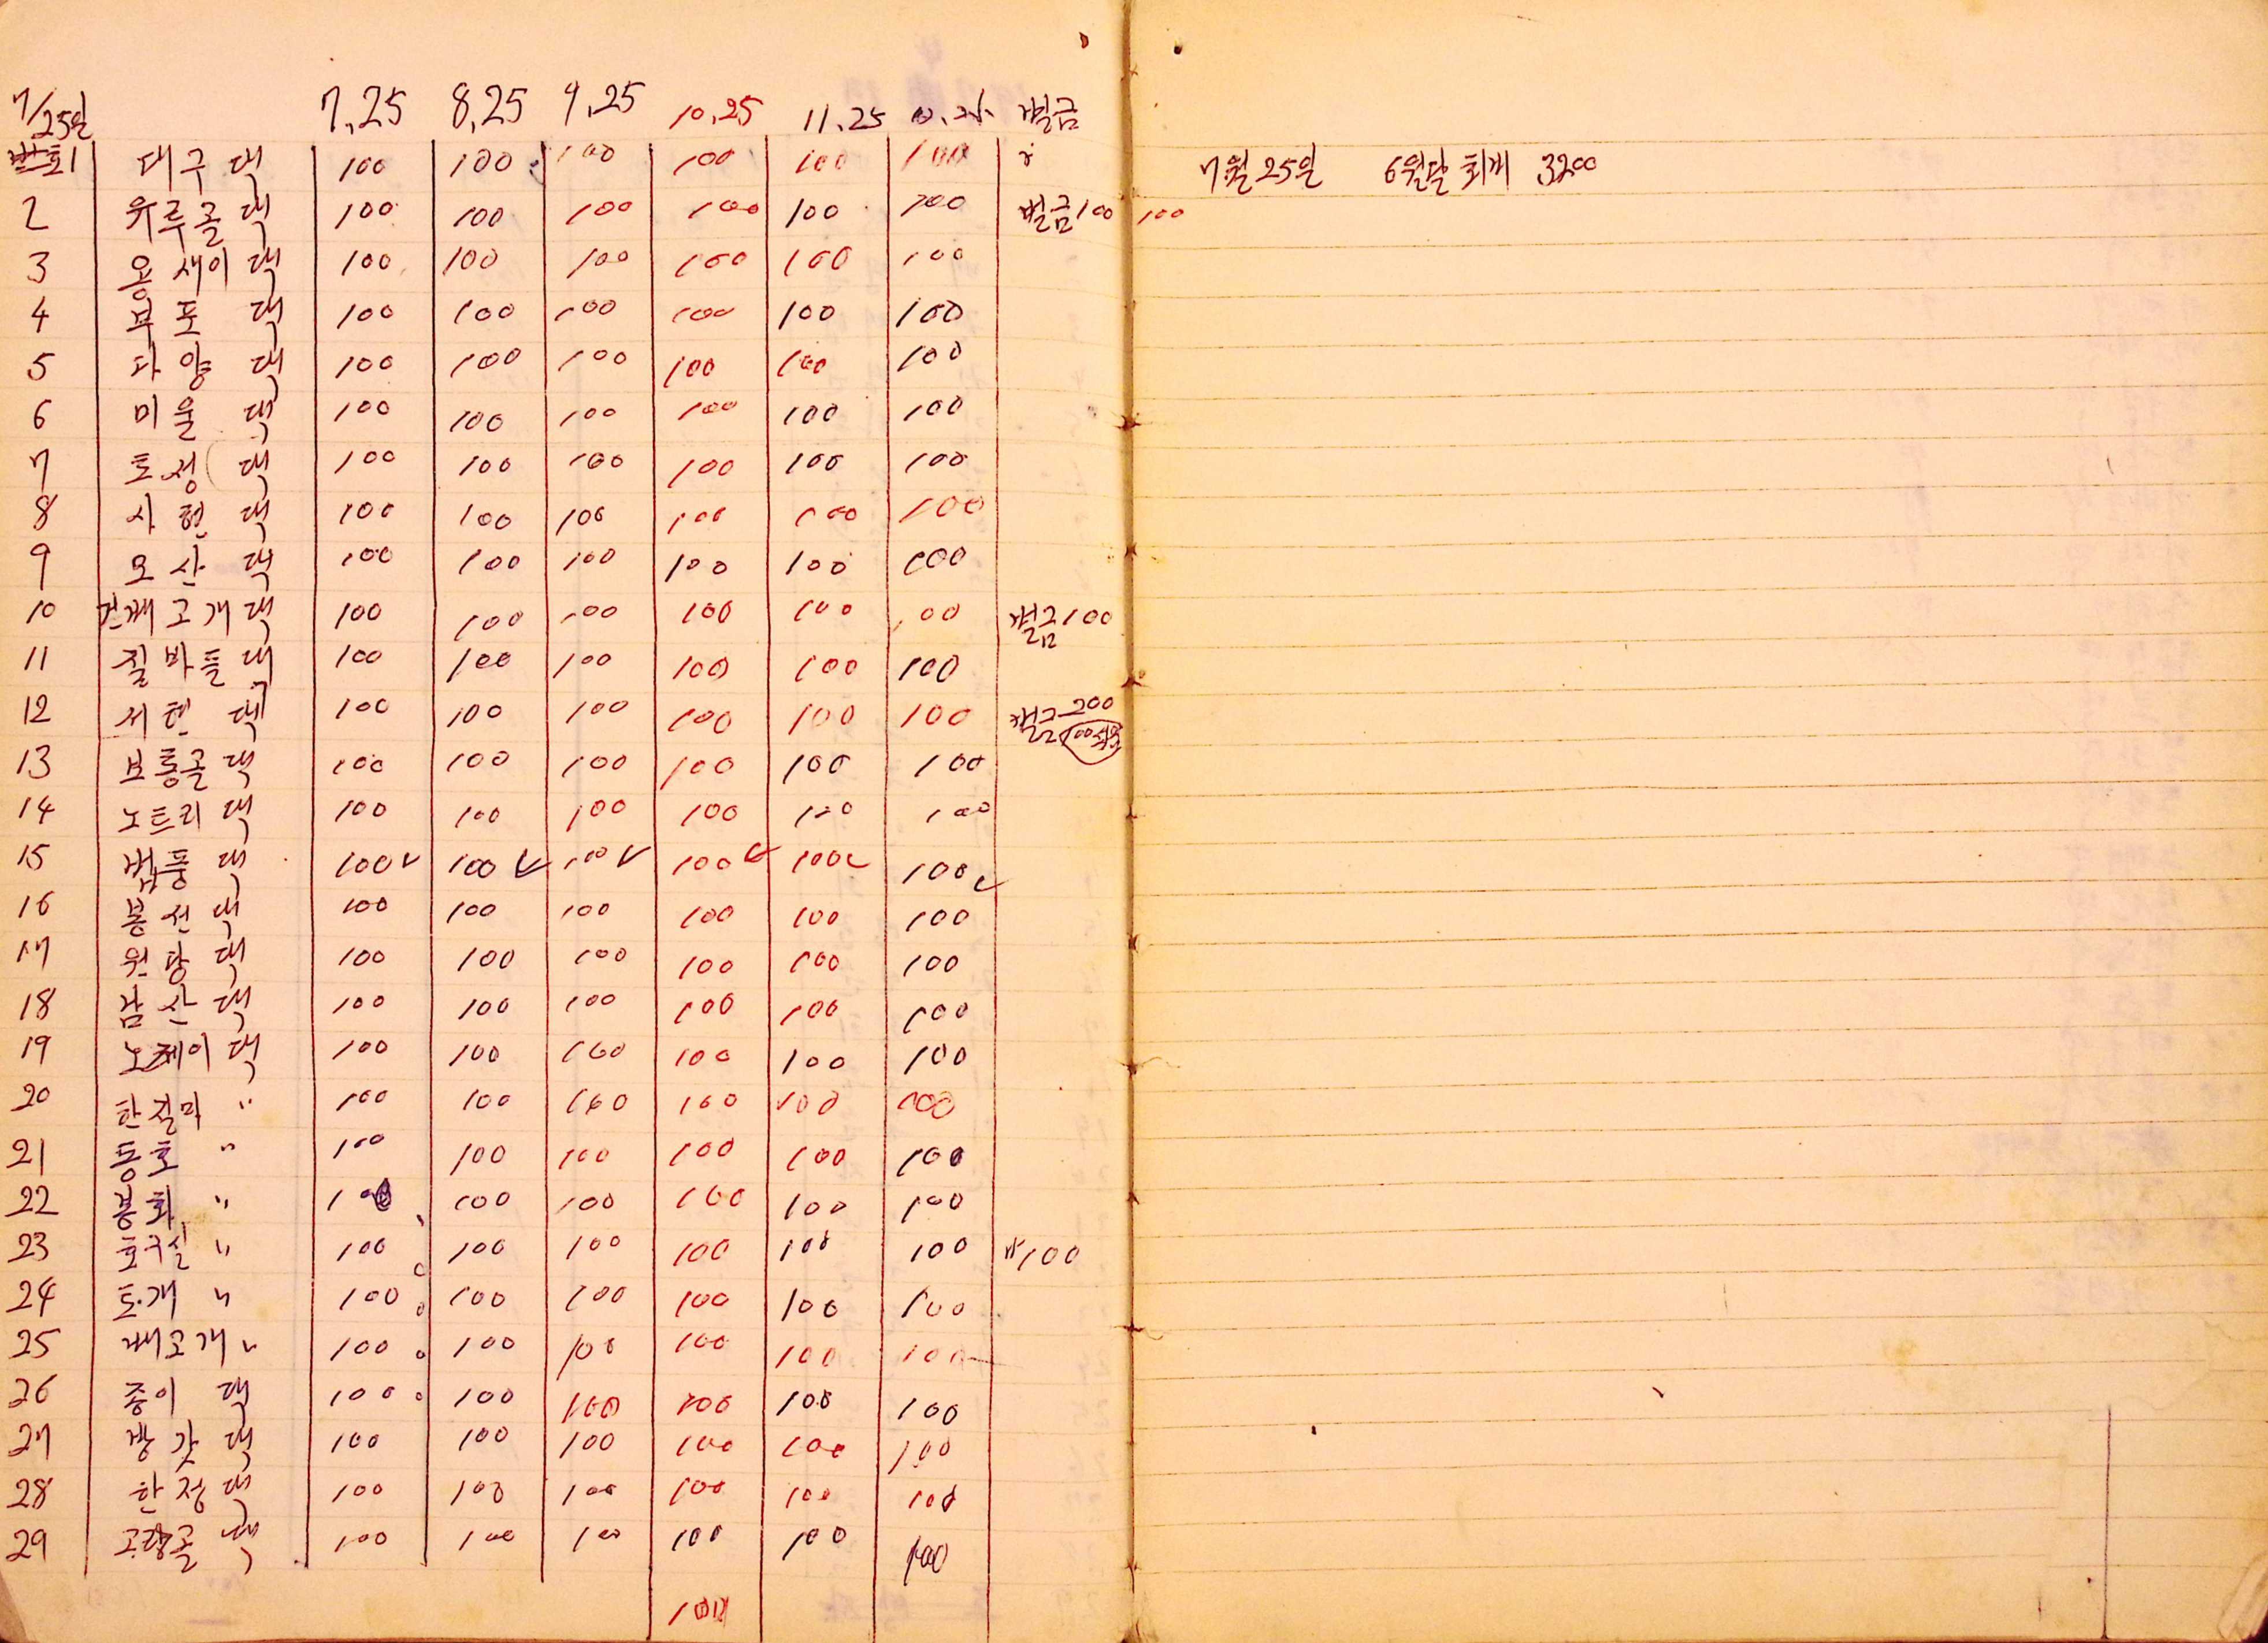 7/25일 7.25 8.25 9.25 10.25 11.25 벌금
번호1 대구댁 100 100 100 100 100 100
7월 25일 6월달 회계 3200
2 유루골댁 100 100 100 100 100 100 벌금100 100
3 용새이댁 100 100 100 100 100 100
4 부포댁 100 100 100 100 100 100
5 다양댁 100 100 100 100 100 100
6 미울댁 100 100 100 100 100 100
7 토정댁 100 100 100 100 100 100
8 사현댁 100 100 100 100 100 100
9 오산댁 100 100 100 100 100 100
10 고개댁 100 100 100 100 100 100 벌금100
11 질바틀댁 100 100 100 100 100 100
12 서댁 100 100 100 100 100 100 벌금 200
13 보통골댁 100 100 100 100 100 100
14 노트리댁 100 100 100 100 100 100
15 법풍댁 100✓ 100✓ 100✓ 100✓ 100✓ 100✓
16 봉선댁 100 100 100 100 100 100
17 원당댁 100 100 100 100 100 100
18 감산댁 100 100 100 100 100 100
19 댁 100 100 100 100 100 100
20 한절마 〃 100 100 100 100 100 100
21 동호 〃 100 100 100 100 100 100
22 봉화 〃 100 100 100 100 100 100
23 호구실 〃 100 100 100 100 100 100 〃100
24 토개 〃 100 100 100 100 100 100
25 배고개 〃 100 100 100 100 100 100
26 종이댁 100 100 100 100 100 100
27 방갓댁 100 100 100 100 100 100
28 한정댁 100 100 100 100 100 100
29 댁 100 100 100 100 100 100